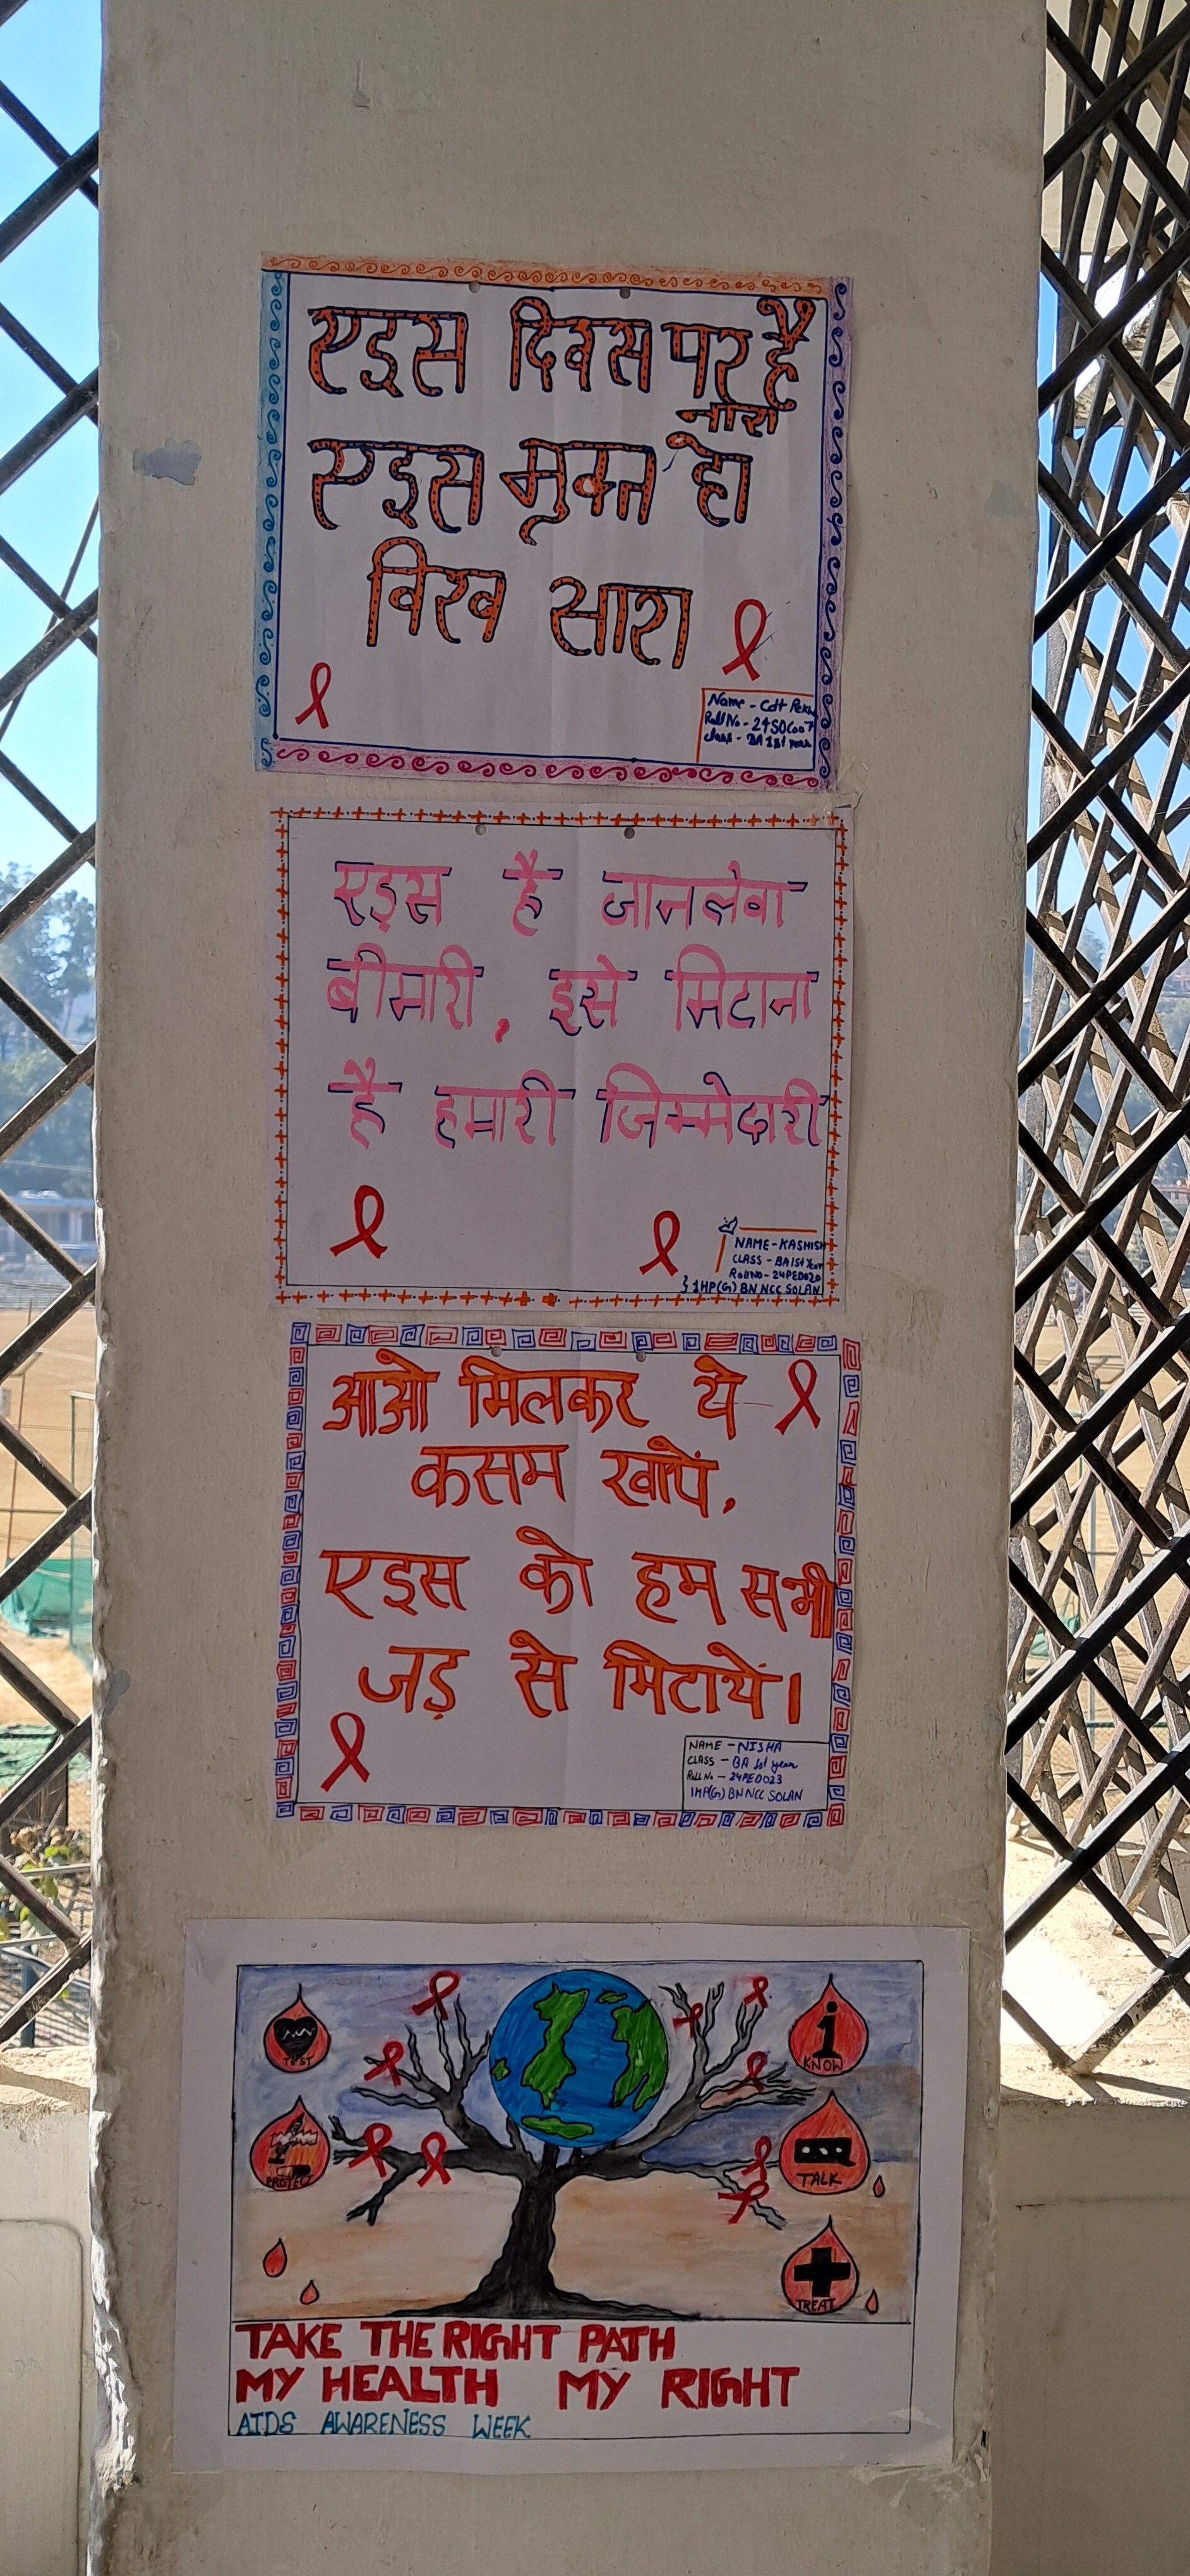 एइस दिवस पर है
नारा
एइस मुक्त हो
विश्व सारा
Name - Cdt
Roll No - 24SOC007
class - BA 1st year
एड्स है जानलेवा
बीमारी, इसे मिटाना
है हमारी जिम्मेदारी
NAME - KASHISH
CLASS - BA 1st Year
Roll No - 24PED020
1HP(G) BN NCC SOLAN
आओ मिलकर ये
कसम खायें,
एइस को हम सभी
जड़ से मिटायें।
NAME - NISHA
CLASS - BA 1st year
Roll No - 24PED023
1HP(G) BN NCC SOLAN
TEST
KNOW
PROTECT
TALK
TREAT
TAKE THE RIGHT PATH
MY HEALTH MY RIGHT
AIDS AWARENESS WEEK